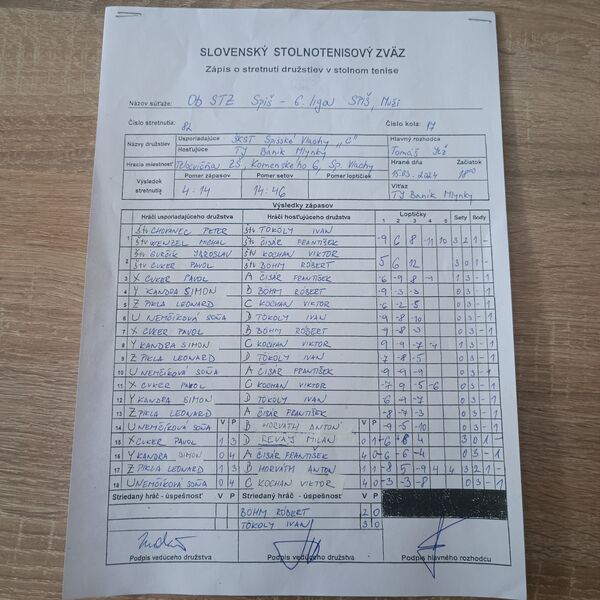 SLOVENSKÝ STOLNOTENISOVÝ ZVÄZ
Zápis o stretnutí družstiev v stolnom tenise
Názov súťaže: Ob STZ Spiš - 6. liga SPIŠ, Muži
Číslo stretnutia: 82 Číslo kola: 17
Názvy družstiev Usporiadajúce ŠKST Spišské Vlachy "C" Hlavný rozhodca
Hosťujúce TJ Baník Mlynky Tomáš
Hracia miestnosť Telocvičňa ZŠ, Komenského 6, Sp. Vlachy Hrané dňa Začiatok
Výsledok stretnutia Pomer zápasov Pomer setov Pomer loptičiek 15.03.2024 18:00
4:14 14:46 Víťaz TJ Baník Mlynky
Výsledky zápasov
Hráči usporiadajúceho družstva Hráči hosťujúceho družstva Loptičky Sety Body
1 2 3 4 5
1 štv CHOVANEC PETER štv TOKOLY IVAN
štv WENZEL MICHAL štv ČISÁR FRANTIŠEK -9 6 8 -11 10 3 2 1 -
2 štv GURČÍK JAROSLAV štv KOCHAN VIKTOR
štv CUKER PAVOL štv BÖHM RÓBERT 5 6 12 3 0 1 -
3 X CUKER PAVOL A ČISÁR FRANTIŠEK 1 3 - 1
4 Y KANDRA ŠIMON B BÖHM RÓBERT -9 -3 -3 0 3 - 1
5 Z PIKLA LEONARD C KOCHAN VIKTOR -6 -2 -5 0 3 - 1
6 U NEMČÍKOVÁ SOŇA D TOKOLY IVAN -9 -8 -10 0 3 - 1
7 X CUKER PAVOL B BÖHM RÓBERT -9 -8 -3 0 3 - 1
8 Y KANDRA SIMON C KOCHAN VIKTOR 1 3 - 1
9 Z PIKLA LEONARD D TOKOLY IVAN 0 3 - 1
10 U NEMČÍKOVÁ SOŇA A ČISÁR FRANTIŠEK -9 -9 -9 0 3 - 1
11 X CUKER PAVOL C KOCHAN VIKTOR -7 9 -5 -6 1 3 - 1
12 Y KANDRA SIMON D TOKOLY IVAN 0 3 - 1
13 Z PIKLA LEONARD A ČISÁR FRANTIŠEK 0 3 - 1
14 U NEMČÍKOVÁ SOŇA V P B HORVÁTH ANTON V P -9 -5 -10 0 3 - 1
15 X CUKER PAVOL 1 3 D REVAJ MILAN 0 1 3 0 1 -
16 Y KANDRA SIMON 0 4 A ČISÁR FRANTIŠEK 4 0 -6 -6 -4 - 1
17 Z PIKLA LEONARD 1 3 B HORVÁTH ANTON 1 1 -8 5 -9 4 4 3 2 1 -
18 U NEMČÍKOVÁ SOŇA 0 4 C KOCHAN VIKTOR 4 0 -3 -3 -8 0 3 - 1
Striedaný hráč - úspešnosť V P Striedaný hráč - úspešnosť V P
BÖHM RÓBERT 2 0
TOKOLY IVAN 3 0
Podpis vedúceho družstva Podpis vedúceho družstva Podpis hlavného rozhodcu